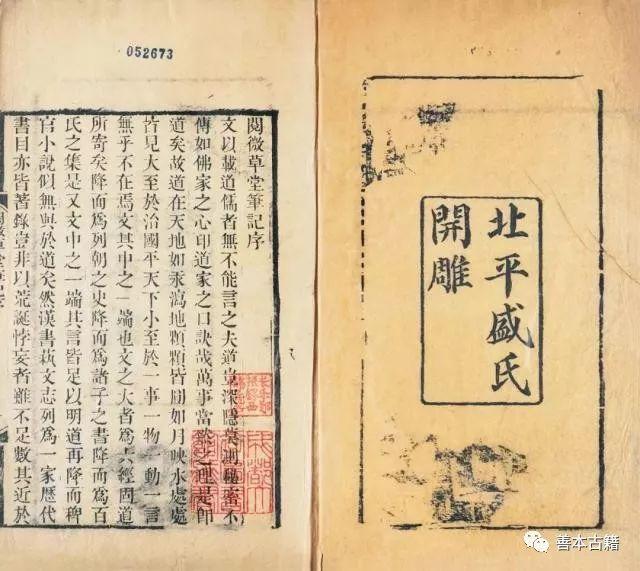 北平盛氏
開雕
052673
閱微草堂筆記序
文以載道儒者無不能言之夫道豈深隱莫測秘密不
傳如佛家之心印道家之口訣哉萬事當然之理是卽
道矣故道在天地如汞瀉地顆顆皆圓如月映水處處
皆見大至於治國平天下小至於一事一物一動一言
無乎不在焉文其中之一端也文之大者爲六經固道
所寄矣降而爲列朝之史降而爲諸子之書降而爲百
氏之集是又文中之一端其言皆足以明道再降而稗
官小說似無與於道矣然漢書藝文志列爲一家歷代
書目亦皆著錄豈非以荒誕悖妄者雖不足數其近於
善本古籍